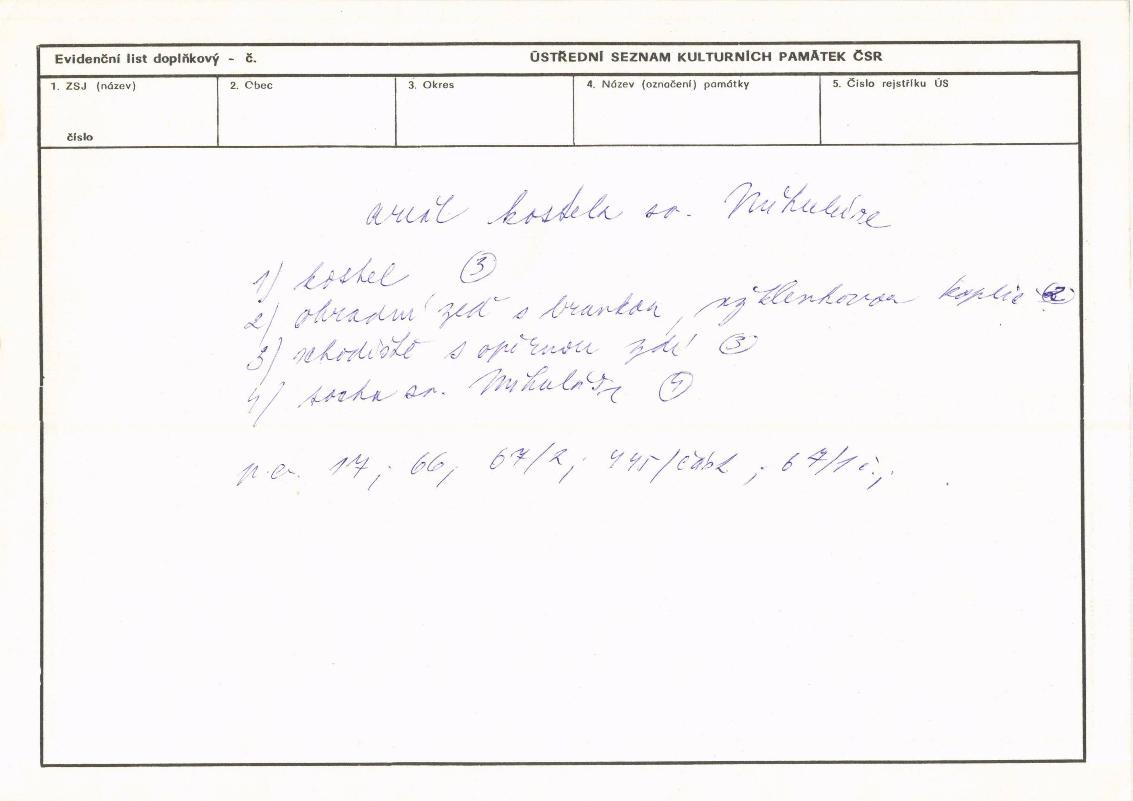 Evidenční list doplňkový - č. ÚSTŘEDNÍ SEZNAM KULTURNÍCH PAMÁTEK ČSR
1. ZSJ (název) 2. Obec 3. Okres 4. Název (označení) památky 5. Číslo rejstříku ÚS
číslo
areál kostela sv. Mikuláše
1) kostel 3
2) ohradní zeď s brankou, výklenkovou kaplic 2
3) schodiště s opěrnou zdí 3
4) socha sv. Mikuláše
p.č. 17, 66, 67/2, 445/část, 67/1